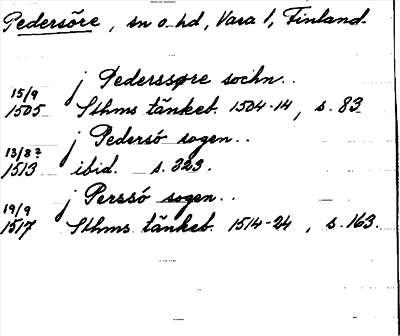 Pedersöre, sn o. hd, Vasa l, Finland.
j Pederssøre sochn..
15/9
1505 Sthms tänkeb. 1504-14, s. 83
j Pedersó sogen..
13/8?
1513 ibid. s. 323.
j Perssó sogen..
19/9
1517 Sthms tänkeb. 1514-24, s. 163.